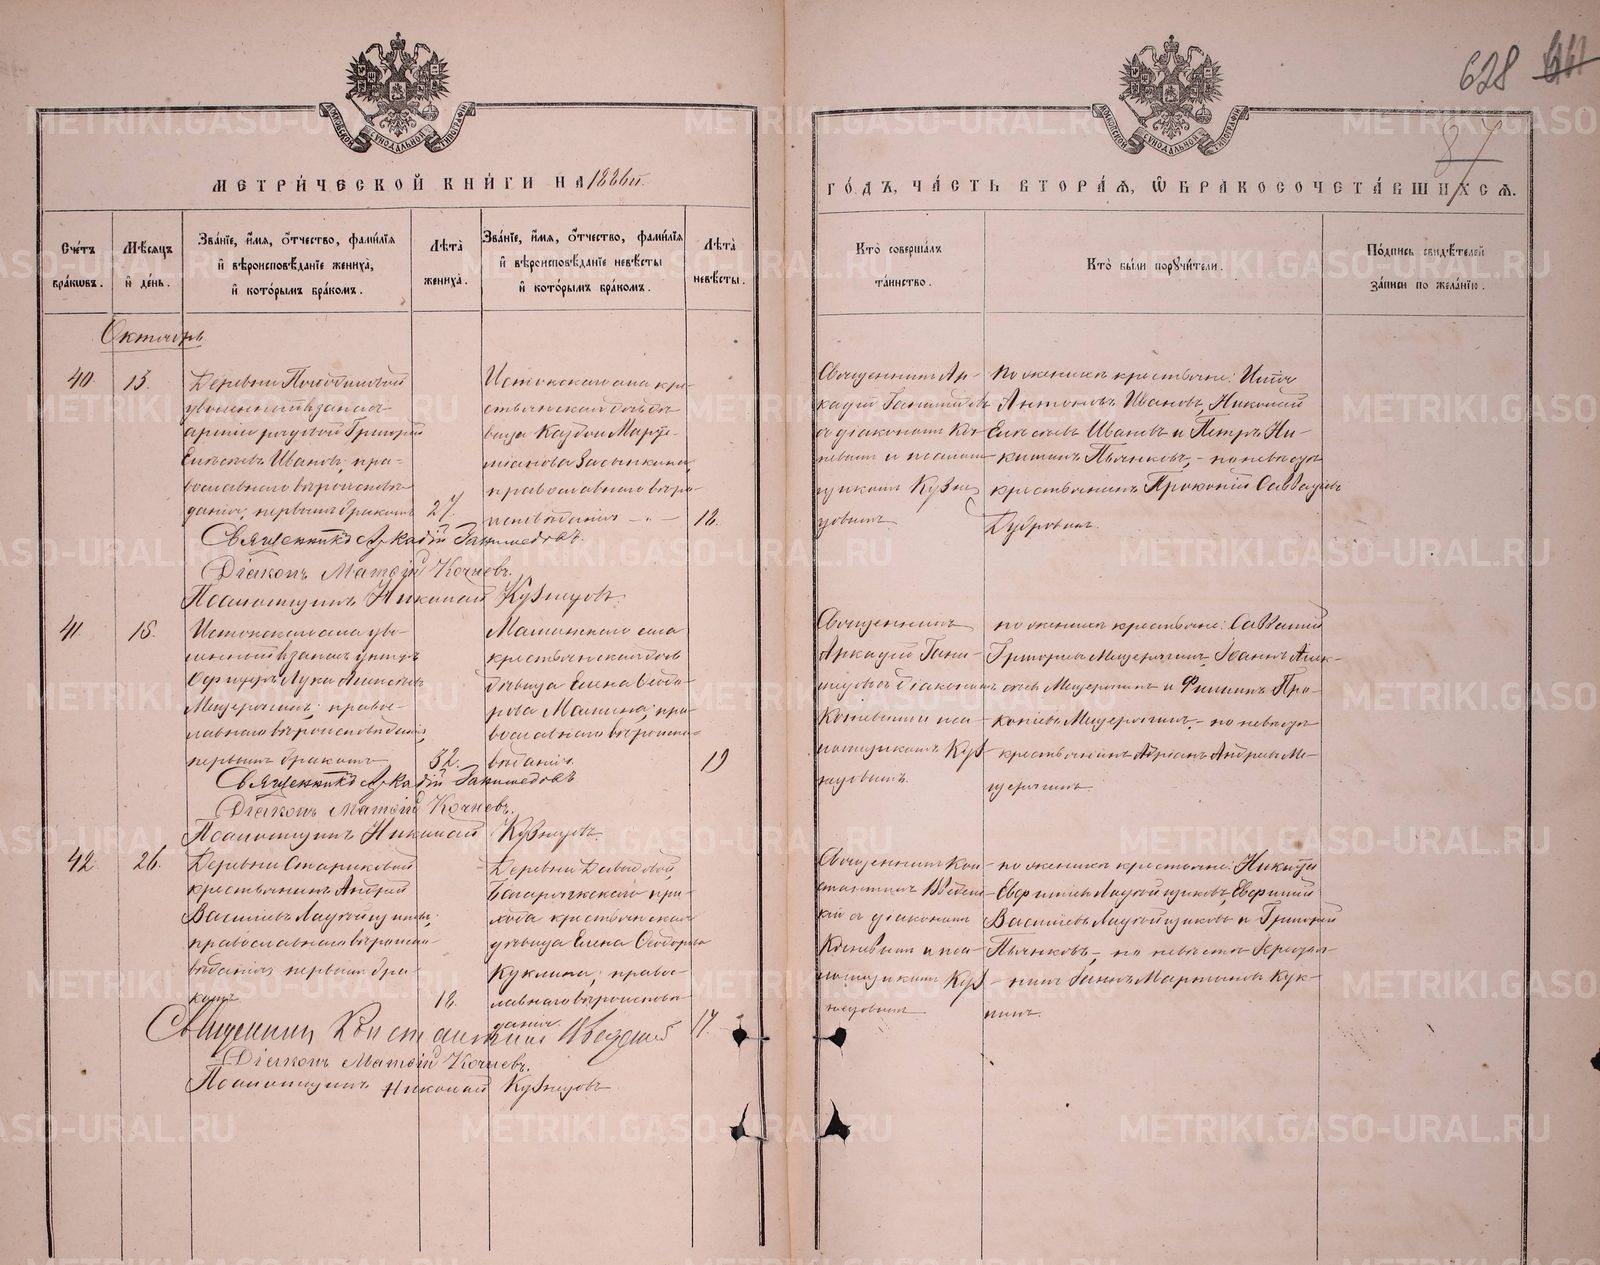 628
87
МОСКОВСКОЙ СѴНОДАЛЬНОЙ ТИПОГРАФІИ
МОСКОВСКОЙ СѴНОДАЛЬНОЙ ТИПОГРАФІИ
МЕТРИ́ЧЕСКОЙ КНИ́ГИ НА 1886й.
ГО́ДЪ, ЧА́СТЬ ВТОРА́Я, Ѡ҆ БРАКОСОЧЕТА́ВШИХСЯ.
Сче́тъ бра́кѡвъ.
Мѣ́сяцъ и҆ де́нь.
Зва́нїе, и҆́мя, ѻ҆́тчество, фамѝлїя и҆ вѣроисповѣ́данїе жениха̀, и҆ кото́рымъ бра́комъ.
Лѣта̀ жениха̀.
Зва́нїе, и҆́мя, ѻ҆́тчество, фамѝлїя и҆ вѣроисповѣ́данїе невѣ́сты и҆ кото́рымъ бра́комъ.
Лѣта̀ невѣ́сты.
Кто̀ соверша́лъ та́инство.
Кто̀ бы́ли порꙋчи́тели.
По́дпись свидѣ́телей за́писи по жела́нїю.
Октябрь
40
13.
Деревни
уволенный въ запасъ
армiи рядовой Григорiй
Елисѣевъ Ивановъ, пра-
вославнаго вѣроисповѣ-
данiя, первымъ бракомъ
27.
Истокскаго села кре-
стьянская дочь дѣ-
вица
православнаго вѣро-
исповѣданiя
18.
Священникъ Ар-
кадiй Ганимедовъ
съ дiакономъ Коч-
невымъ и псалом-
щикомъ Кузне-
цовымъ.
по женихѣ крестьяне:
Антоновъ Ивановъ, Николай
Елисѣевъ Ивановъ и Петръ Ни-
китинъ Пьянковъ, - по невѣстѣ
крестьянинъ Прокопiй Савватѣевъ
Дубровинъ.
Священникъ Аркадiй Ганимедовъ.
Дiаконъ Матѳiй Кочневъ.
Псаломщикъ Николай Кузнецовъ.
41.
15.
Истокскаго села уво-
ленный въ запасъ унтеръ
офицеръ Лука Алексѣевъ
Мещерягинъ, правос-
лавнаго вѣроисповѣданiя,
первымъ бракомъ
32.
Маминскаго села
крестьянская дочь
дѣвица Елена Ѳеодо-
рова Мамина, пра-
вославнаго вѣроиспо-
вѣданiя.
19
Священникъ
Аркадiй Гани-
медовъ съ дiакономъ
Кочневымъ и пса-
ломщикомъ Куз-
нецовымъ.
по женихѣ крестьяне: Савватiй
Григорьевъ Мещерягинъ, Iоаннъ Алек-
сѣевъ Мещерягинъ и Филиппъ Про-
копiевъ Мещерягинъ, - по невѣстѣ
крестьянинъ Адрiанъ Андреевъ Ме-
щерягинъ.
Священникъ Аркадiй Ганимедовъ
Дiаконъ Матѳiй Кочневъ.
Псаломщикъ Николай Кузнецовъ.
42.
26.
Деревни Стариковой
крестьянинъ Андрей
Васильевъ
православнаго вѣроиспо-
вѣданiя, первымъ бра-
комъ
18.
Деревни Давыдовой,
при-
хода крестьянская
дѣвица Елена Ѳеодорова
Куклина, правос-
лавнаго вѣроисповѣ-
данiя
17.
Священникъ Кон-
стантинъ Введен-
скiй съ дiакономъ
Кочневымъ и пса-
ломщикомъ Куз-
нецовымъ
по женихѣ крестьяне: Никита
Евфимiевъ Евфимiй
Васильевъ и Григорiй
Пьянковъ, - по невѣстѣ крестья-
нинъ Мартиновъ Кук-
линъ.
Священникъ Константинъ Введенскiй
Дiаконъ Матѳiй Кочневъ.
Псаломщикъ Николай Кузнецовъ
METRIKI.GASO-URAL.RU